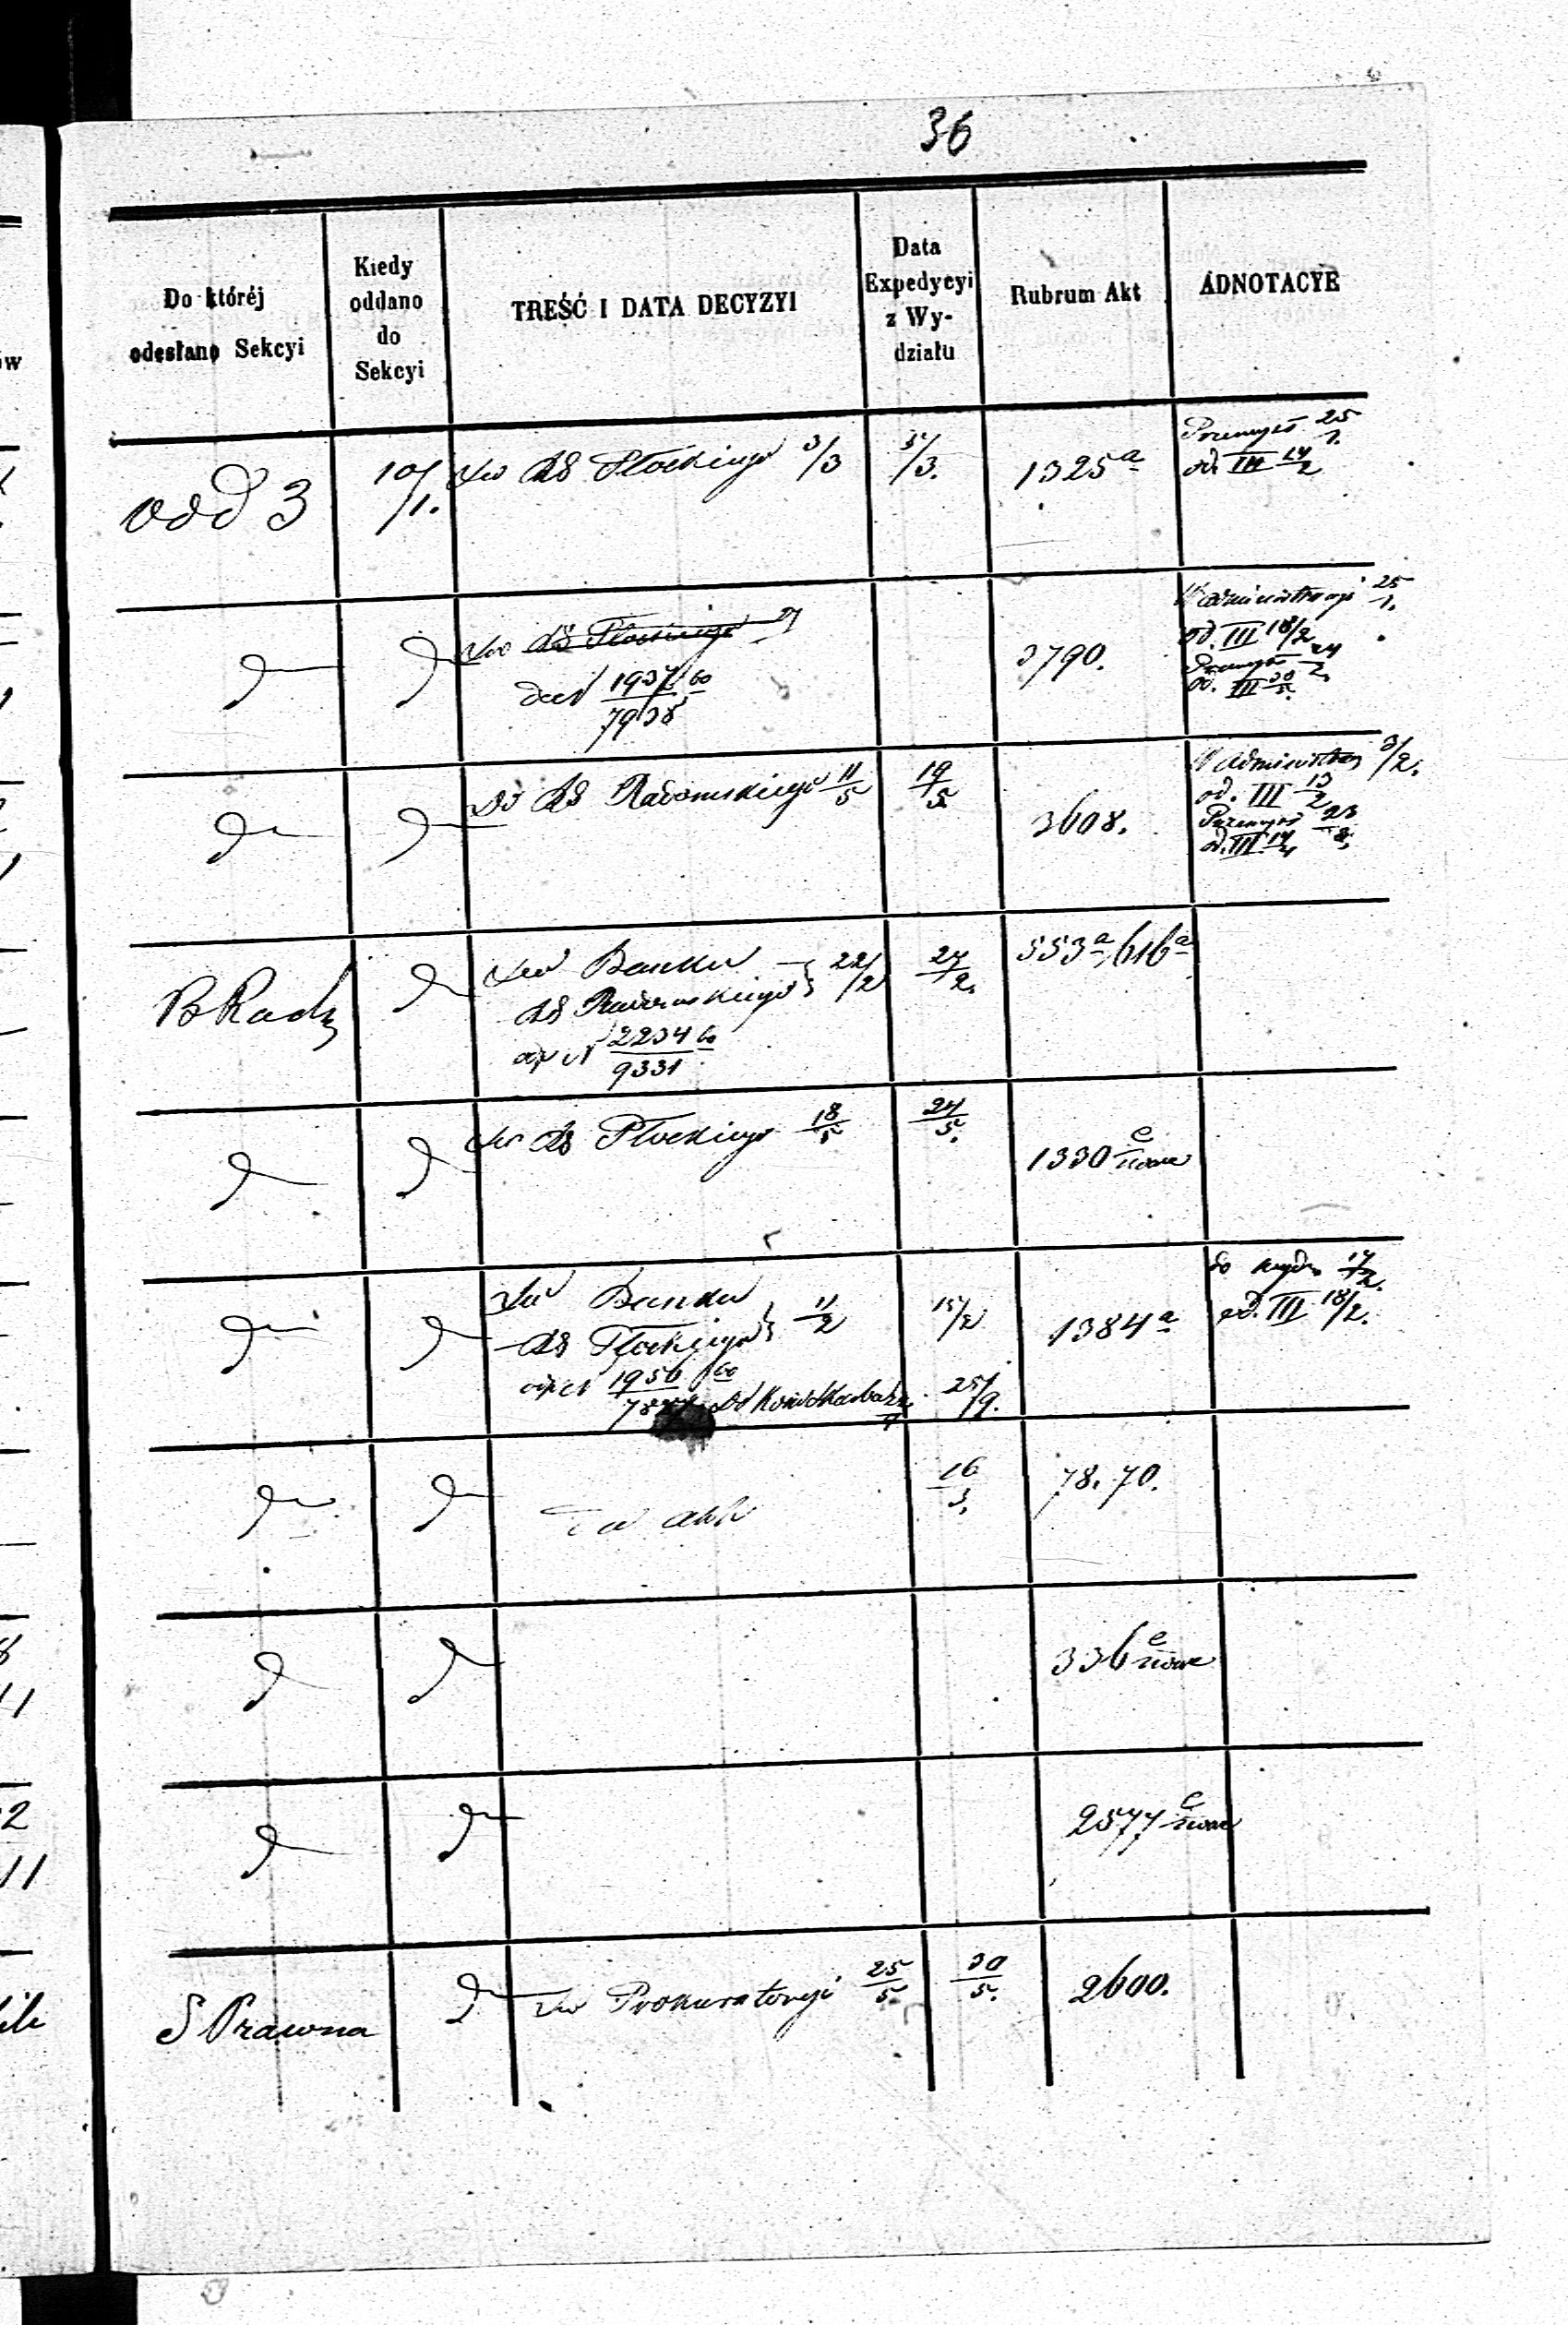 36
Do któréj odesłano Sekcyi
Kiedy oddano do Sekcyi
TREŚĆ I DATA DECYZYI
Data Expedycyi z Wydziału
Rubrum Akt
ADNOTACYE
odd 3
10/1.
Płockiego 3/3
5/3.
1325a
Przemysł 25/1.
od. III 14/2
d
d
Płockiego
1937 60
7938
3790.
W administracyi 25/1.
od. III 18/2
Przemysł 24/2
od. III 30/5.
d
d
Do Radomskiego 11/5
19/5.
3608.
W Administracyi 3/2.
od. III 13/2
Przemysł 23
od. III 14/4
d
Banku
Radomskiego 22/2
2234 60
9331
27/2.
553a, 616a
d
d
Płockiego 18/5
24/5.
1330 e nowe
d
d
Banku
Płockiego 11/2
1956 60
15/2
25/9.
1384a
do 17/2.
od. III 18/2.
d
d
akt
16/3.
78. 70.
d
d
336 e nowe
d
d
2577 e nowe
S Prawna
d
Prokuratoryi 25/5
30/5.
2600.